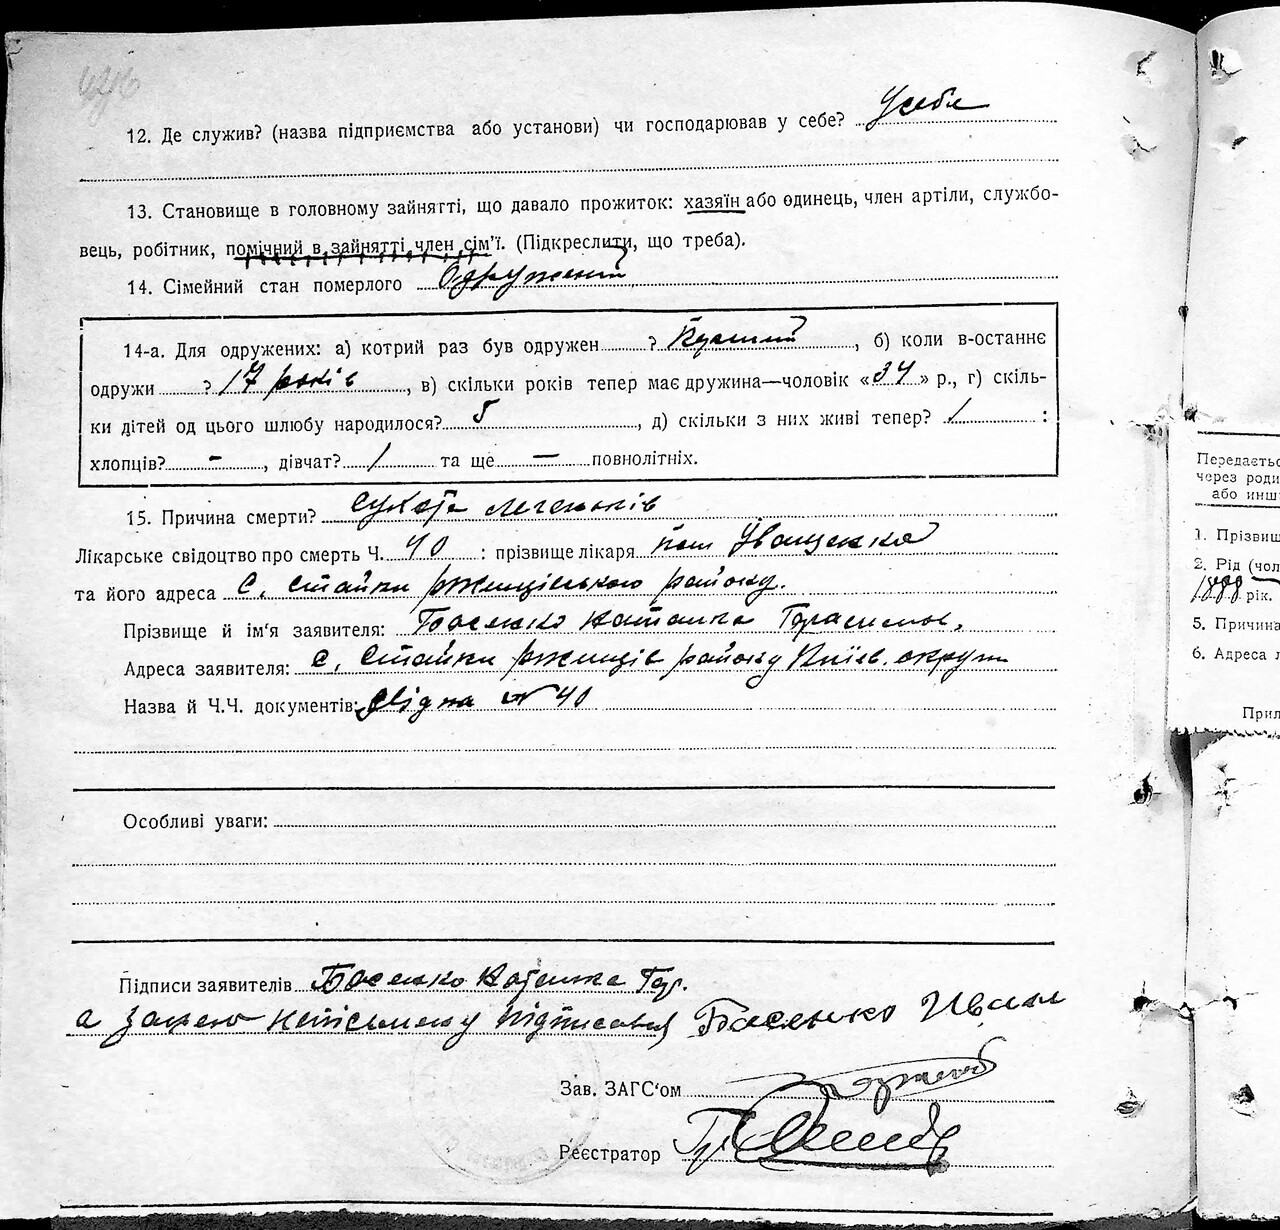 12. Де служив? (назва підприємства або установи) чи господарював у себе? У себе
13. Становище в головному зайнятті, що давало прожиток: хазяїн або одинець, член артілі, службо-
вець, робітник, помічний в зайнятті член сім'ї. (Підкреслити, що треба).
14. Сімейний стан померлого Одружений
14-а. Для одружених: а) котрий раз був одружен ? Перший, б) коли в-останнє
одружи ? 17 років, в) скільки років тепер має дружина—чоловік «34» р., г) скіль-
ки дітей од цього шлюбу народилося? 5, д) скільки з них живі тепер? 1 :
хлопців? –, дівчат? 1 та ще – повнолітніх.
15. Причина смерти? сухота легеньків
Лікарське свідоцтво про смерть Ч. 40 : прізвище лікаря
та його адреса С. Стайки ржищівського району.
Прізвище й ім'я заявителя: Босенко Герасимов.
Адреса заявителя: С. Стайки ржищів району Київ. округи
Назва й Ч.Ч. документів: №40
Особливі уваги:
Підписи заявителів Босенко Гер.
а неписьмену підписався Басенко Иван
Зав. ЗАГС'ом
Реєстратор
Передаєтьс
через роди
або инши
1. Прізвищ
2. Рід (чол
1888 рік.
5. Причина
6. Адреса л
Прил